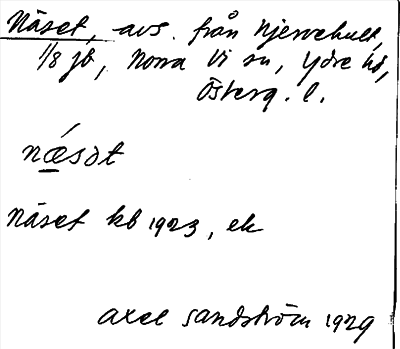 Näset, avs. från Njervehult,
1/8 jb, Norra Vi sn, Ydre hd,
Österg. l.
næ´sət
Näset kb 1923, ek
Axel Sandström 1929